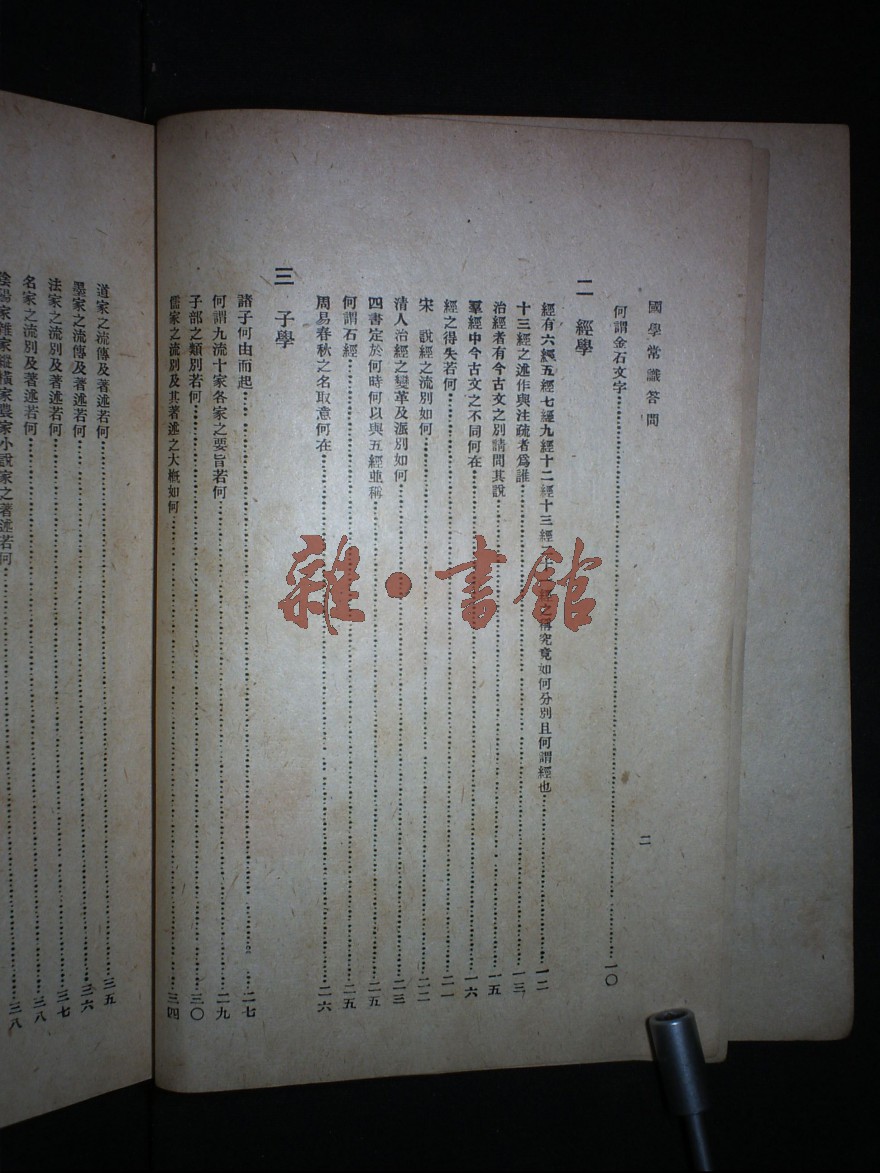 國學常識答問
二
何謂金石文字 一〇
二 經學
經有六經五經七經九經十二經十三經 之稱究竟如何分別且何謂經也 一二
十三經之述作與注疏者爲誰 一三
治經者有今古文之別請問其說 一五
羣經中今古文之不同何在 一六
經之得失若何 二一
宋 說經之流別如何 二二
清人治經之變革及派別如何 二三
四書定於何時何以與五經並稱 二五
何謂石經 二五
周易春秋之名取意何在 二六
三 子學
諸子何由而起 二七
何謂九流十家各家之要旨若何 二九
子部之類別若何 三〇
儒家之流別及其著述之大槪如何 三四
道家之流傳及著述若何 三五
墨家之流傳及著述若何 三六
法家之流別及著述若何 三七
名家之流別及著述若何 三八
陰陽家雜家縱橫家農家小說家之著述若何 三八
雜·書館